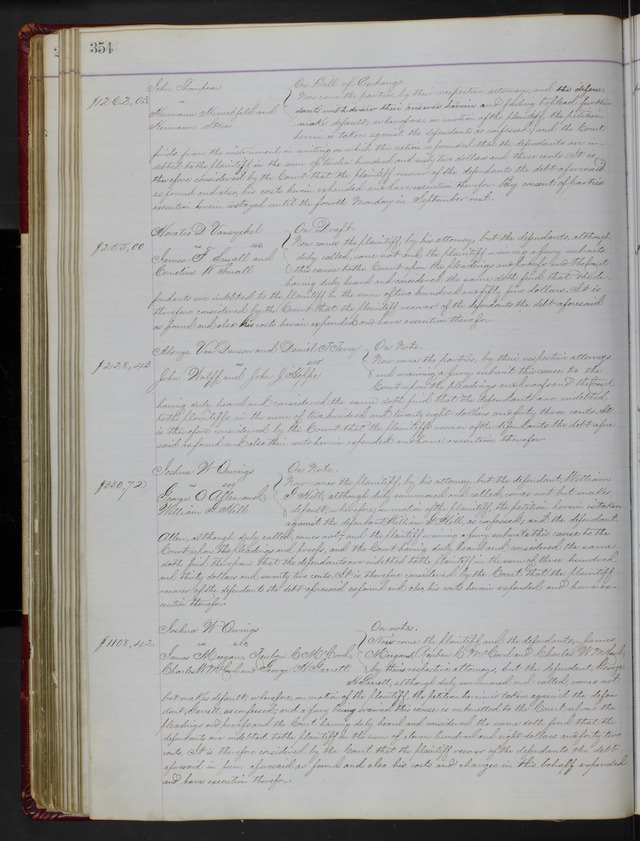 354
John Thompson On Bill of Exchange
$1262,03 vs Now come the parties by their respective attorneys, and the defen-
Hermann Hirschfeld and dants withdraw their answer herein and failing to plead further
Hermann Stein make default; wherefore, on motion of the plaintiff, the petition
herein is taken against the defendants as confessed, and the Court
finds from the instrument in writing on which this action is founded that the defendants are in-
debted to the plaintiff in the sum of twelve hundred and sixty two dollars and three cents. It is
therefore considered by the Court that the plaintiff recover of the defendants the debt aforesaid
as found and also his costs herein expended and have execution therefor. By consent of parties
execution herein is stayed until the fourth Monday in September next.
Horatio D. On Draft.
$255,00 vs Now comes the plaintiff, by his attorney, but the defendants, although
James F. Small and duly called, come not and the plaintiff waiving a jury submits
Cornelius W Small this cause to the Court upon the pleadings and proofs and the Court
having duly heard and considered the same doth find that the de-
fendants are indebted to the plaintiff in the sum of two hundred and fifty five dollars. It is
therefore considered by the Court that the plaintiff recover of the defendants the debt aforesaid
as found and also his costs herein expended and have execution therefor.
Alonzo Van Deusen and Daniel T. Terry On Note.
$228,43 vs Now come the parties, by their respective attorneys
John Wolff and John J. Hoppe and waiving a jury submit this cause to the
Court upon the pleadings and proofs and the Court
having duly heard and considered the same doth find that the defendants are indebted
to the plaintiffs in the sum of two hundred and twenty eight dollars and forty three cents. It
is therefore considered by the Court that the plaintiffs recover of the defendants the debt afore-
said as found and also their costs herein expended and have execution therefor
Joshua W Owings On Note.
$330,72 vs Now comes the plaintiff, by his attorney, but the defendant, William
George O Allen and I Hill, although duly summoned and called, comes not but makes
William I Hill default; wherefore, on motion of the plaintiff, the petition herein is taken
against the defendant William I. Hill, as confessed, and the defendant
Allen, although duly called, comes not and the plaintiff waiving a jury submits this cause to the
Court upon the pleadings and proofs, and the Court having duly heard and considered the same
doth find therefrom that the defendants are indebted to the plaintiff in the sum of three hundred
and thirty dollars and seventy two cents. It is therefore considered by the Court that the plaintiff
recover of the defendants the debt aforesaid as found and also his costs herein expended and have ex-
ecution therefor.
Joshua W Owings On notes.
$1108,42 vs Now come the plaintiff, and the defendants, James
James Morgan, Reuben C McCord, Morgan, Reuben C McCord and Charles W McCord,
Charles W McCord and George H Garrett by their respective attorneys, but the defendant, George
H Garrett, although duly summoned and called, comes not
but makes default; wherefore, on motion of the plaintiff, the petition herein is taken against the defen-
dant, Garrett, as confessed, and a jury being waived this cause is submitted to the Court upon the
pleadings and proofs and the Court having duly heard and considered the same doth find that the
defendants are indebted to the plaintiff in the sum of eleven hundred and eight dollars and forty two
cents. It is therefore considered by the Court that the plaintiff recover of the defendants the debt
aforesaid in form aforesaid as found and also his costs and charges in this behalf expended
and have execution therefor.